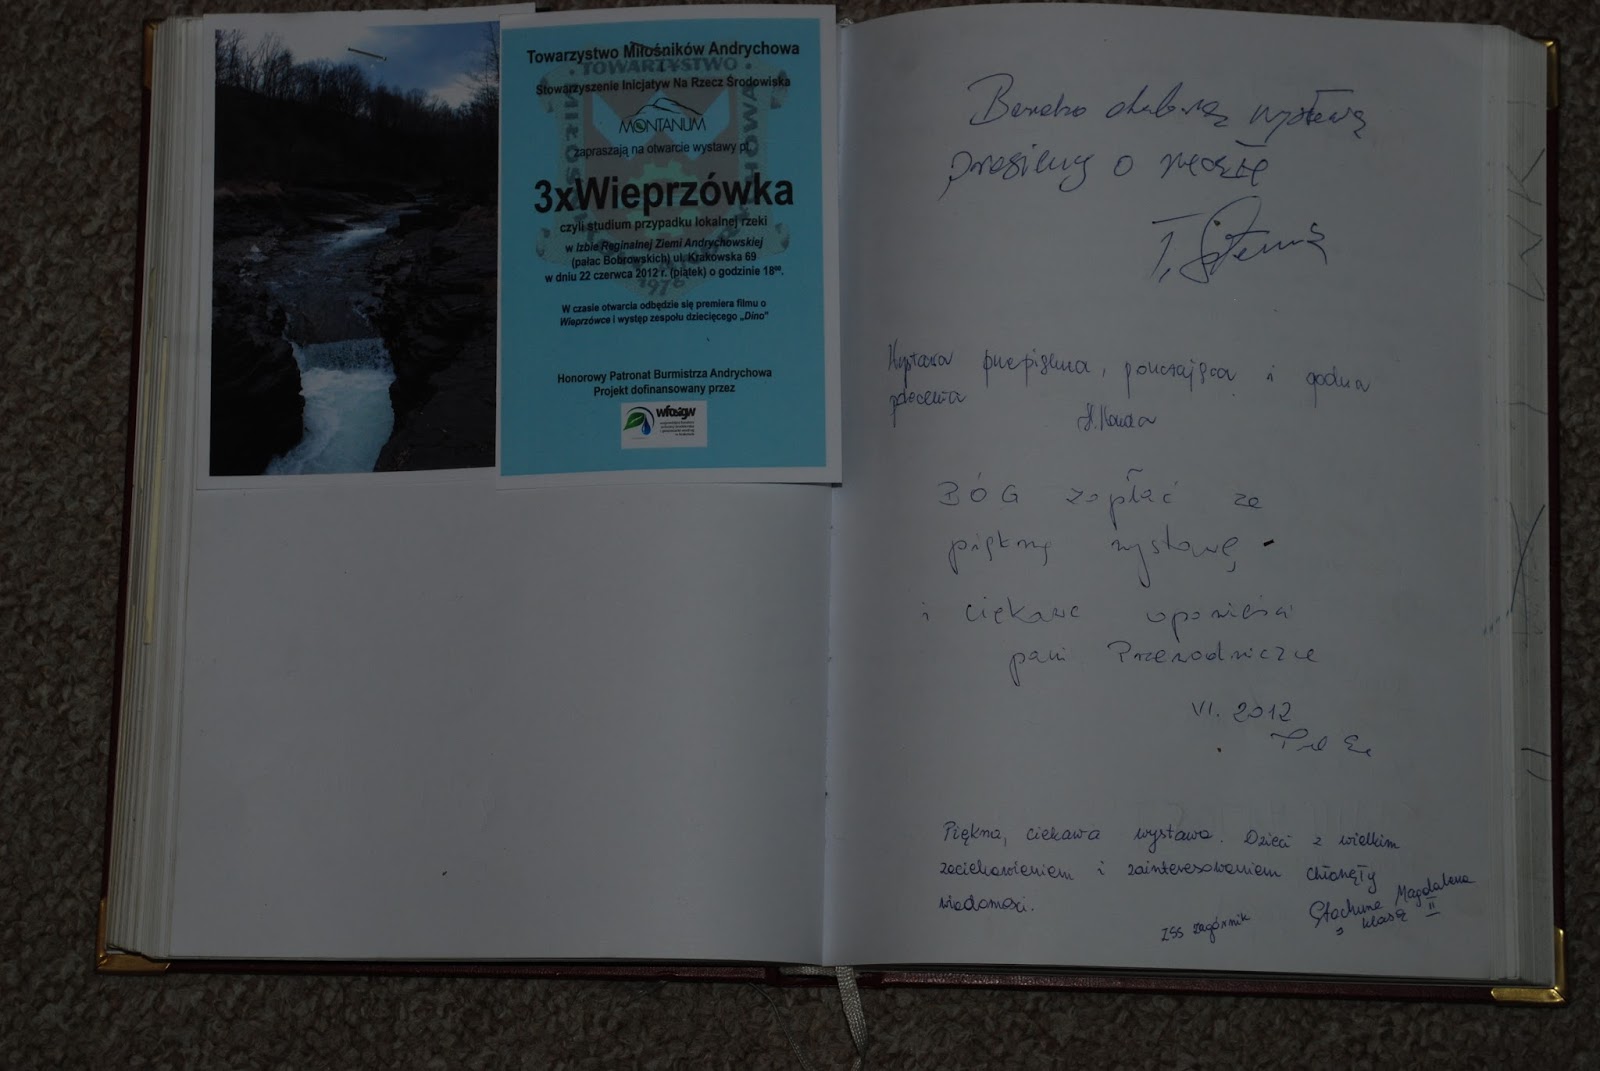 Towarzystwo Miłośników Andrychowa
· TOWARZYSTWO ·
Stowarzyszenie Inicjatyw Na Rzecz Środowiska
MONTANUM
zapraszają na otwarcie wystawy pt.
3xWieprzówka
czyli studium przypadku lokalnej rzeki
w Izbie Reginalnej Ziemi Andrychowskiej
(pałac Bobrowskich) ul. Krakowska 69
w dniu 22 czerwca 2012 r. (piątek) o godzinie 18⁰⁰.
1976
W czasie otwarcia odbędzie się premiera filmu o
Wieprzówce i występ zespołu dziecięcego „Dino"
Honorowy Patronat Burmistrza Andrychowa
Projekt dofinansowany przez
wfośigw
Bardzo ciekawą wystawą
prosimy o
T.
Wystawa przepiękna, pouczająca i godna
polecenia
H.
BÓG zapłać za
piękną wystawę
i ciękawe opowieści
pani Przewodniczce
VI. 2012
Piękna, ciekawa wystawa. Dzieci z wielkim
zaciekawieniem i zainteresowaniem chłonęły
wiadomości.
ZSS Zagórnik
Stachura Magdalena
z klasą II